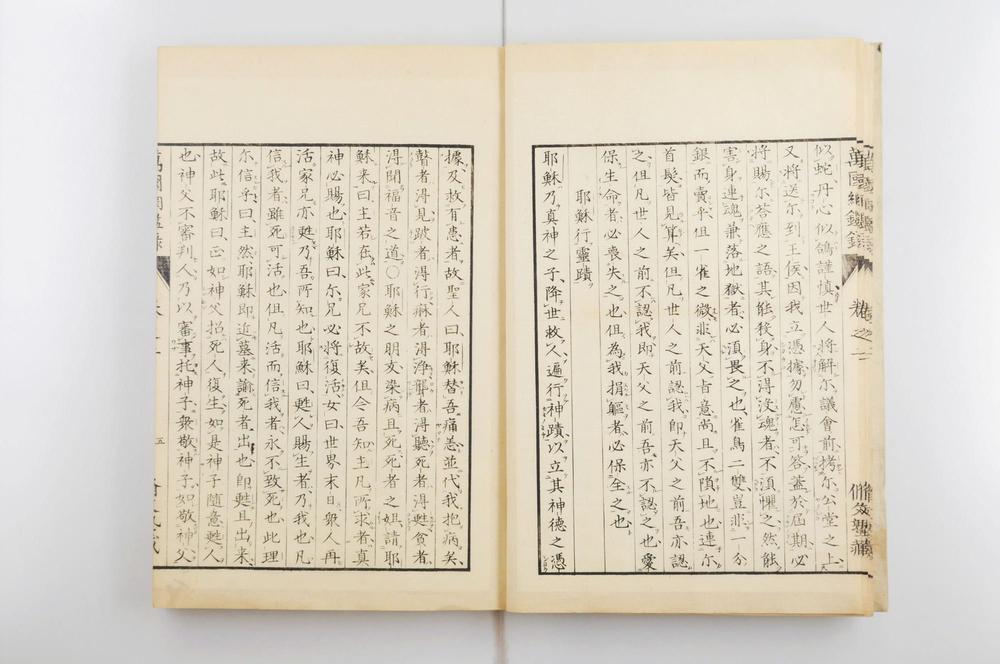 萬國綱鑑錄
卷之二
似蛇丹心似鴿謹慎世人將解尔議會前拷尔公堂之上
又將送尔到王侯因我立憑據勿慮怎可答蓋於屆期必
將賜尔答應之語其能殺身不得沒魂者不須懼之然能
害身連魂兼落地獄者必須畏之也雀鳥二雙豈非一分
銀而賣乎但一雀之微非天父肯意尚且不隕地也連尔
首髮皆見算矣但凡世人之前認我即天父之前吾亦認
之但凡世人之前不認我即天父之前吾亦不認之也愛
保生命者必喪失之也但為我捐軀者必保全之也
耶穌行靈蹟
耶穌乃真神之子降世救人遍行神蹟以立其神德之憑
據及救有患者故聖人曰耶穌替吾痛恙並代我抱病矣
瞽者得見跛者得行痳者得淨聾者得聽死者得甦貧者
得聞福音之道○耶穌之朋友染病且死死者之姐請耶
穌來曰主若在此家兄不故矣但今吾知主凡所求者真
神必賜也耶穌曰尔兄必將復活女曰世界末日衆人再
活家兄亦甦乃吾所知也耶穌曰甦人賜生者乃我也凡
信我者雖死可活也但凡活而信我者永不致死也此理
尔信乎曰主然耶穌即近墓来諭死者出也即甦且出来
故此耶穌曰正如神父招死人復生如是神子隨意甦人
也神父不審判人乃以審事托神子衆敬神子如敬神父
五